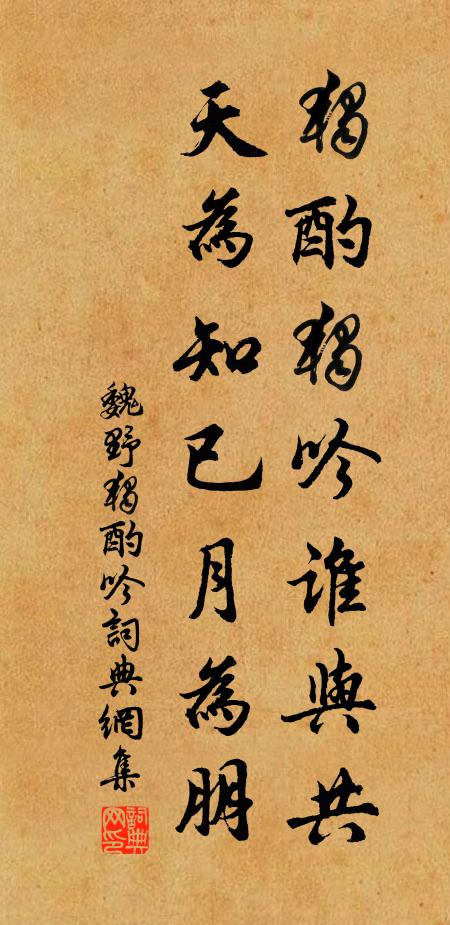 獨酌獨吟誰與共
天為知已月為朋
魏野獨酌吟詞典網集
詞典网印